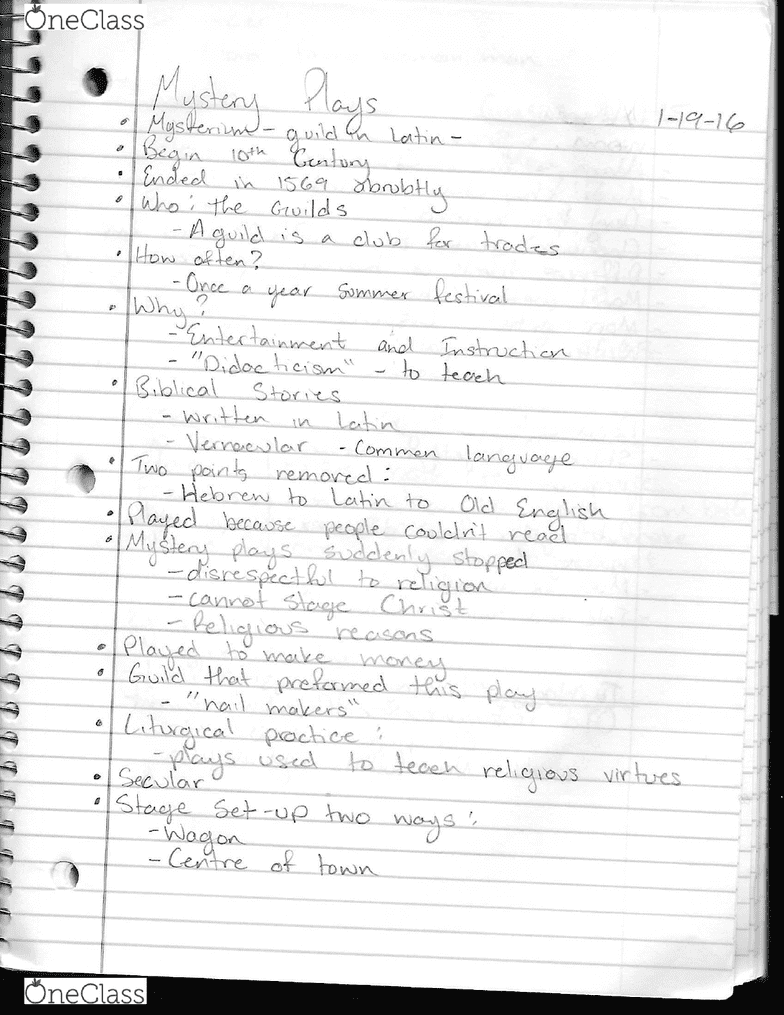 OneClass
Mystery Plays
1-19-16
• Mysterium - guild in Latin -
• Begin 10th Century
• Ended in 1569 abrubtly
• Who: the Guilds
- A guild is a club for trades
• How often?
- Once a year summer festival
• Why?
- Entertainment and Instruction
- "Didacticism" - to teach
• Biblical Stories
- written in Latin
- Vernacular - Common language
• Two points removed:
- Hebrew to Latin to Old English
• Played because people couldn't read
• Mystery plays suddenly stopped
- disrespectful to religion
- cannot stage Christ
- Religious reasons
• Played to make money
• Guild that preformed this play
- "nail makers"
• Liturgical practice:
- plays used to teach religious virtues
• Secular
• Stage Set-up two ways:
- Wagon
- Centre of town
OneClass